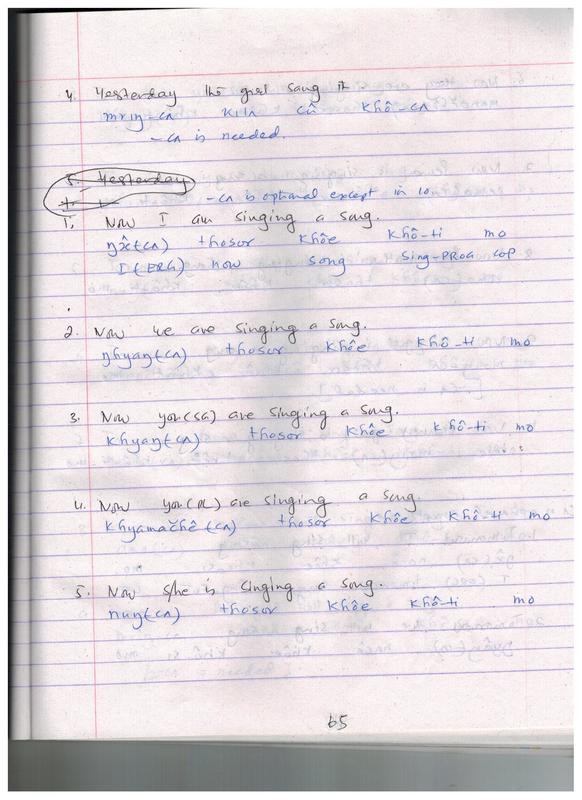 4. Yesterday the girl sang it
mrıŋ-cʌ kılʌ cû khô-cʌ
-cʌ is needed.
5. Yesterday
-cʌ is optional except in 10.
1. Now I am singing a song.
ŋx̂(cʌ) thosor khôe khô-ti mo
I (ERG) now song Sing-PROG COP
2. Now we are singing a song.
ŋhyaŋ(cʌ) thosor khôe khô-ti mo
3. Now you(SG) are singing a song.
khyaŋ(cʌ) thosor khôe khô-ti mo
4. Now you(PL) are singing a song.
khyamačhê(cʌ) thosor khôe khô-ti mo
5. Now s/he is singing a song.
huŋ(cʌ) thosor khôe khô-ti mo
65